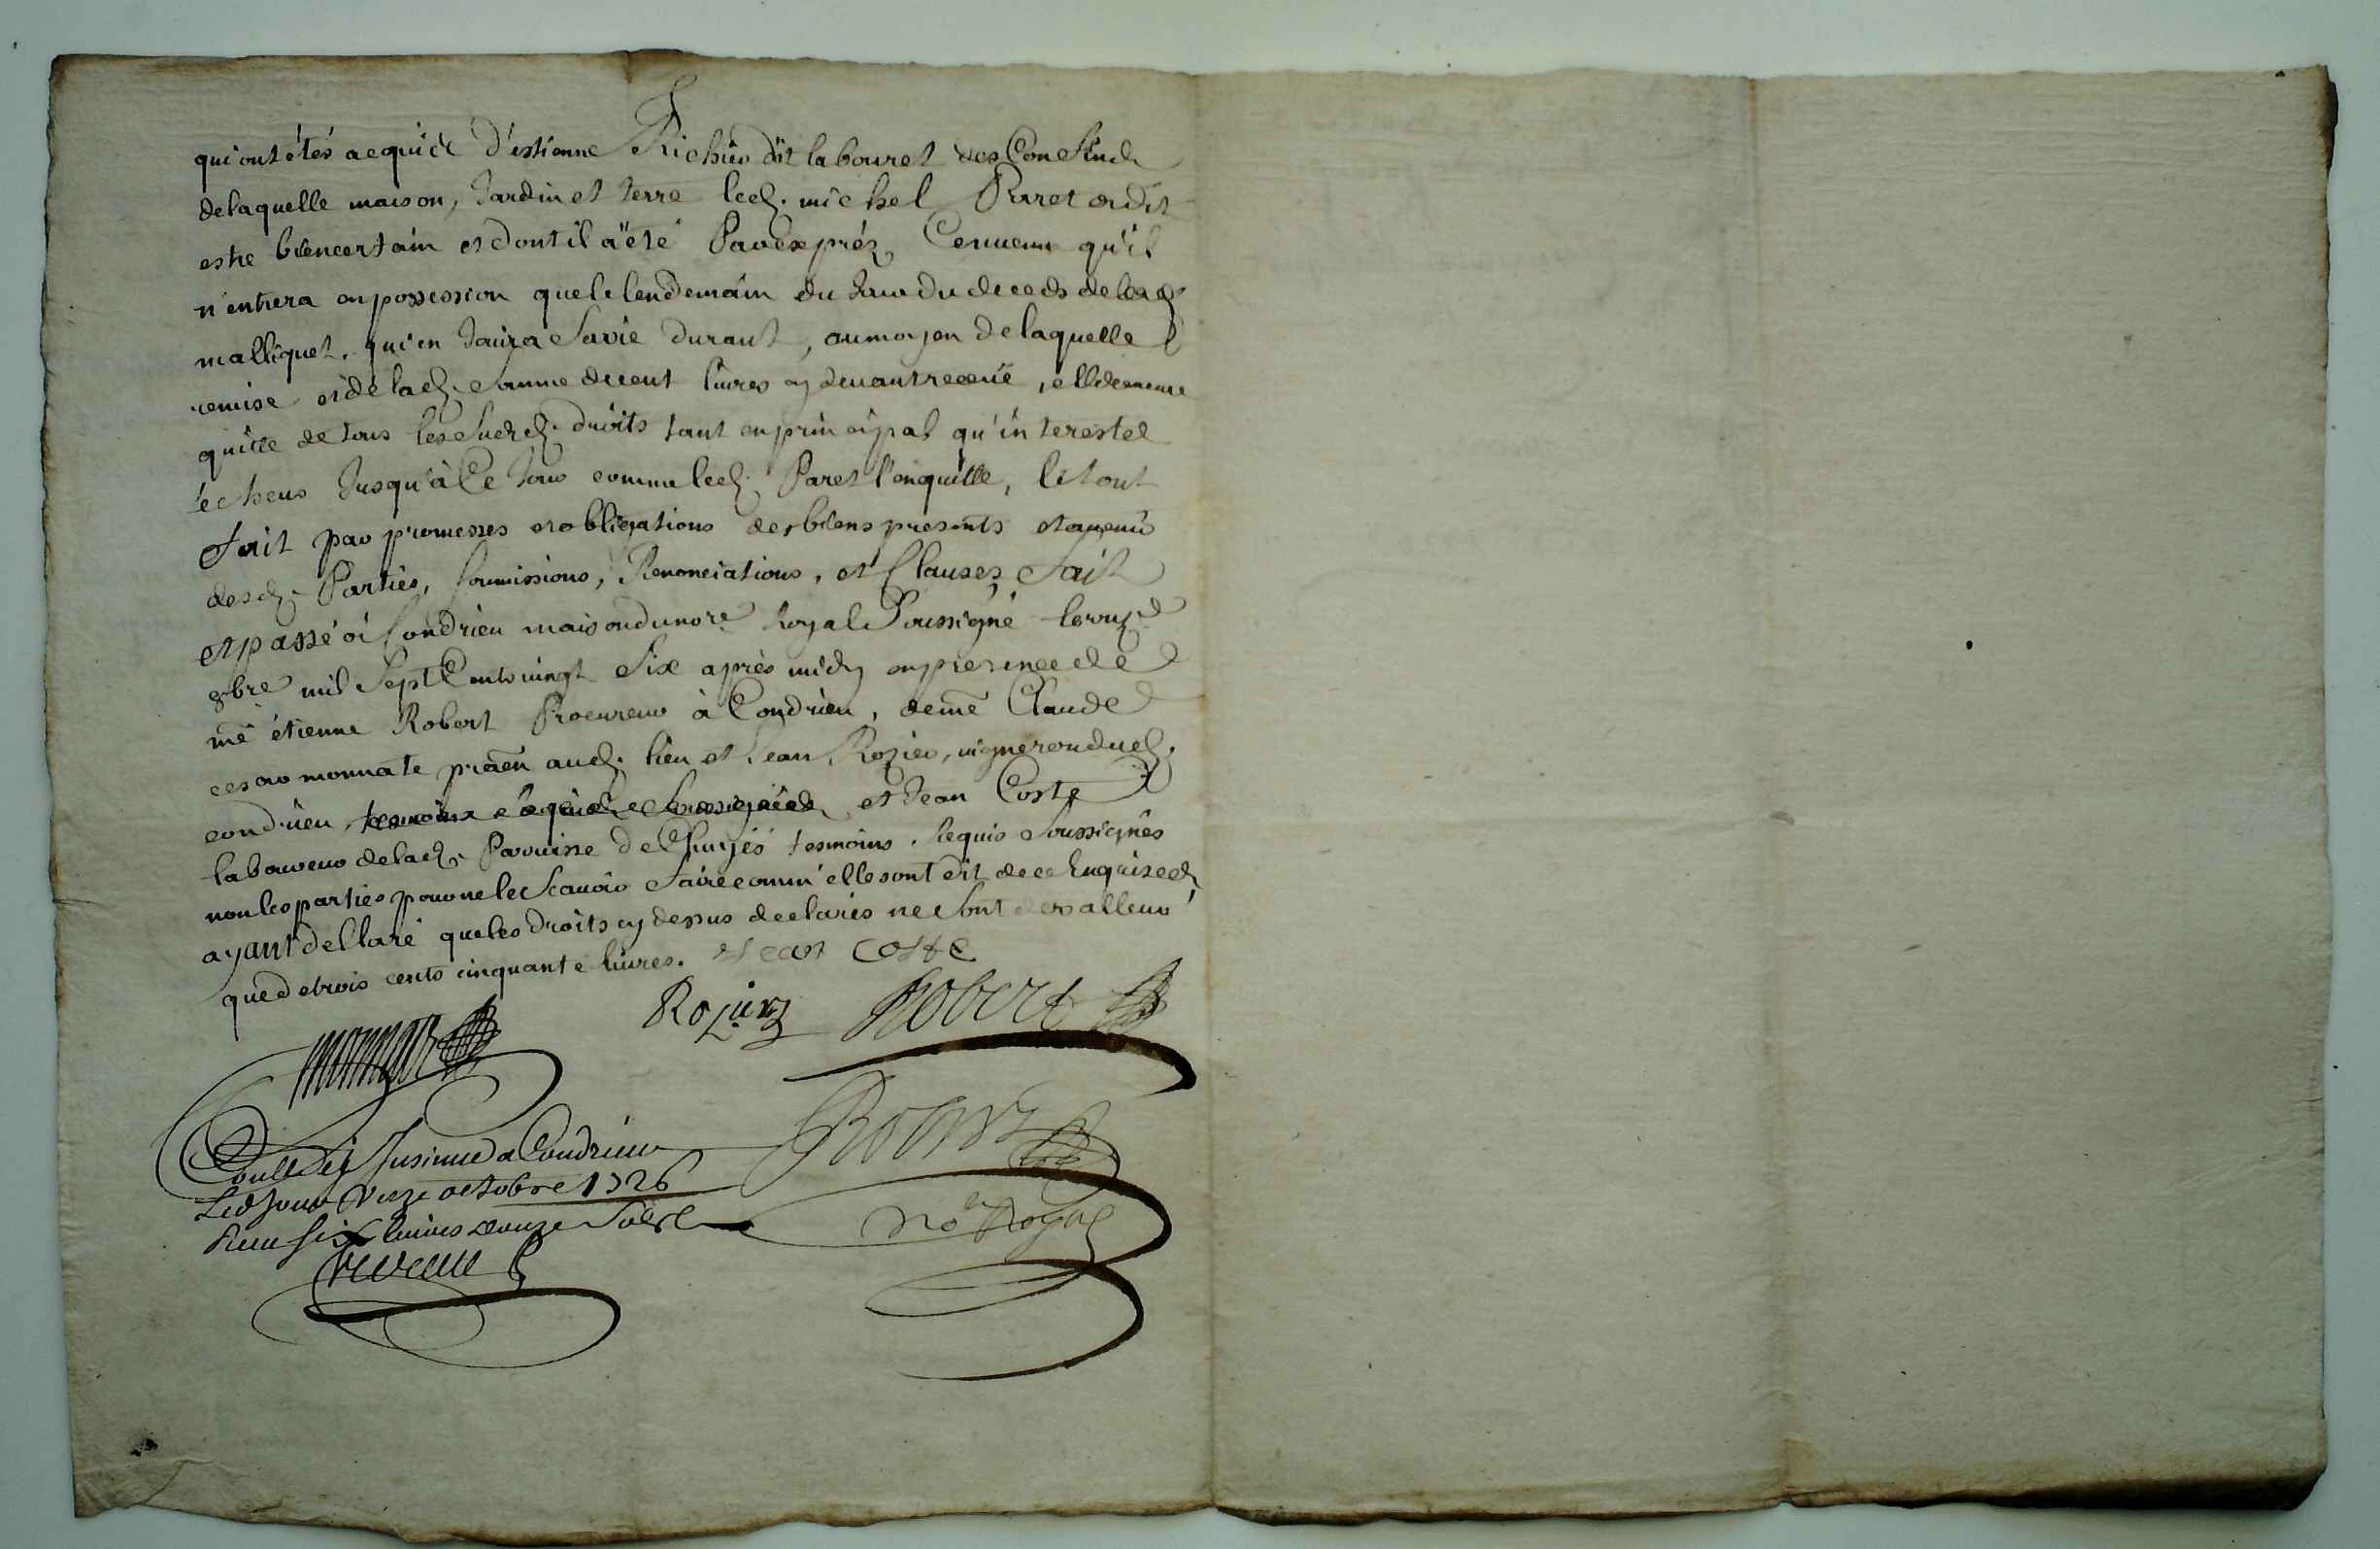 qui ont étés acquis d'estienne Richier dit labouret des confins
de laquelle maison, Jardin et terre led. michel Paret a dit
estre bien certain et dont il a été Par exprés Convenu qu'il
n'entrera en possession que le lendemain du Jour du deceds de lad.
malliquet, qui en Jouira Sa vie durant, au moyen de laquelle
remise et de lad. Somme de cent livres cy devant receüe, elle demeure
quitte de tous les Susd. droits tant en principal qu'interest
écheus Jusqu'à Ce Jour comme led. Paret l'en quitte, le tout
fait par promesses et obligations des biens presents et avenir
desd. Parties, Soumissions, Renonciations, et Clauses fait
et passé à Condrieu maison du nore. Royal Soussigné le
8bre mil Sept Cents vingt Six après midy en presence de
me étienne Robert Procureur à Condrieu, de me Claude
cesar monnate praen aud. lieu et Jean Rozier, vigneron dud.
condrieu, et Jean Coste
laboureur de lad. Parroisse de Chuyés tesmoins Requis Soussignés
non les parties pour ne le Scavoir faire comm'elles ont dit de ce Enquises
ayant declaré que les droits cy dessus declarés ne Sont de valleur
que de trois cents cinquante livres. Jean Coste
Rozier Robert
Conllé et Insinué a Condrieu
Led Jour octobre 1726
Receu six livres douze Sols
no Royal